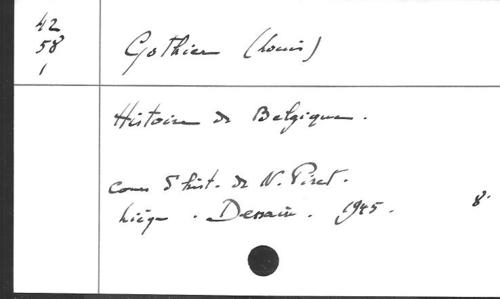 42
58
1
Gothier (Louis)
Histoire de Belgique.
cours d'hist. de N. Piret.
Liège. Dessain. 1945. 8°